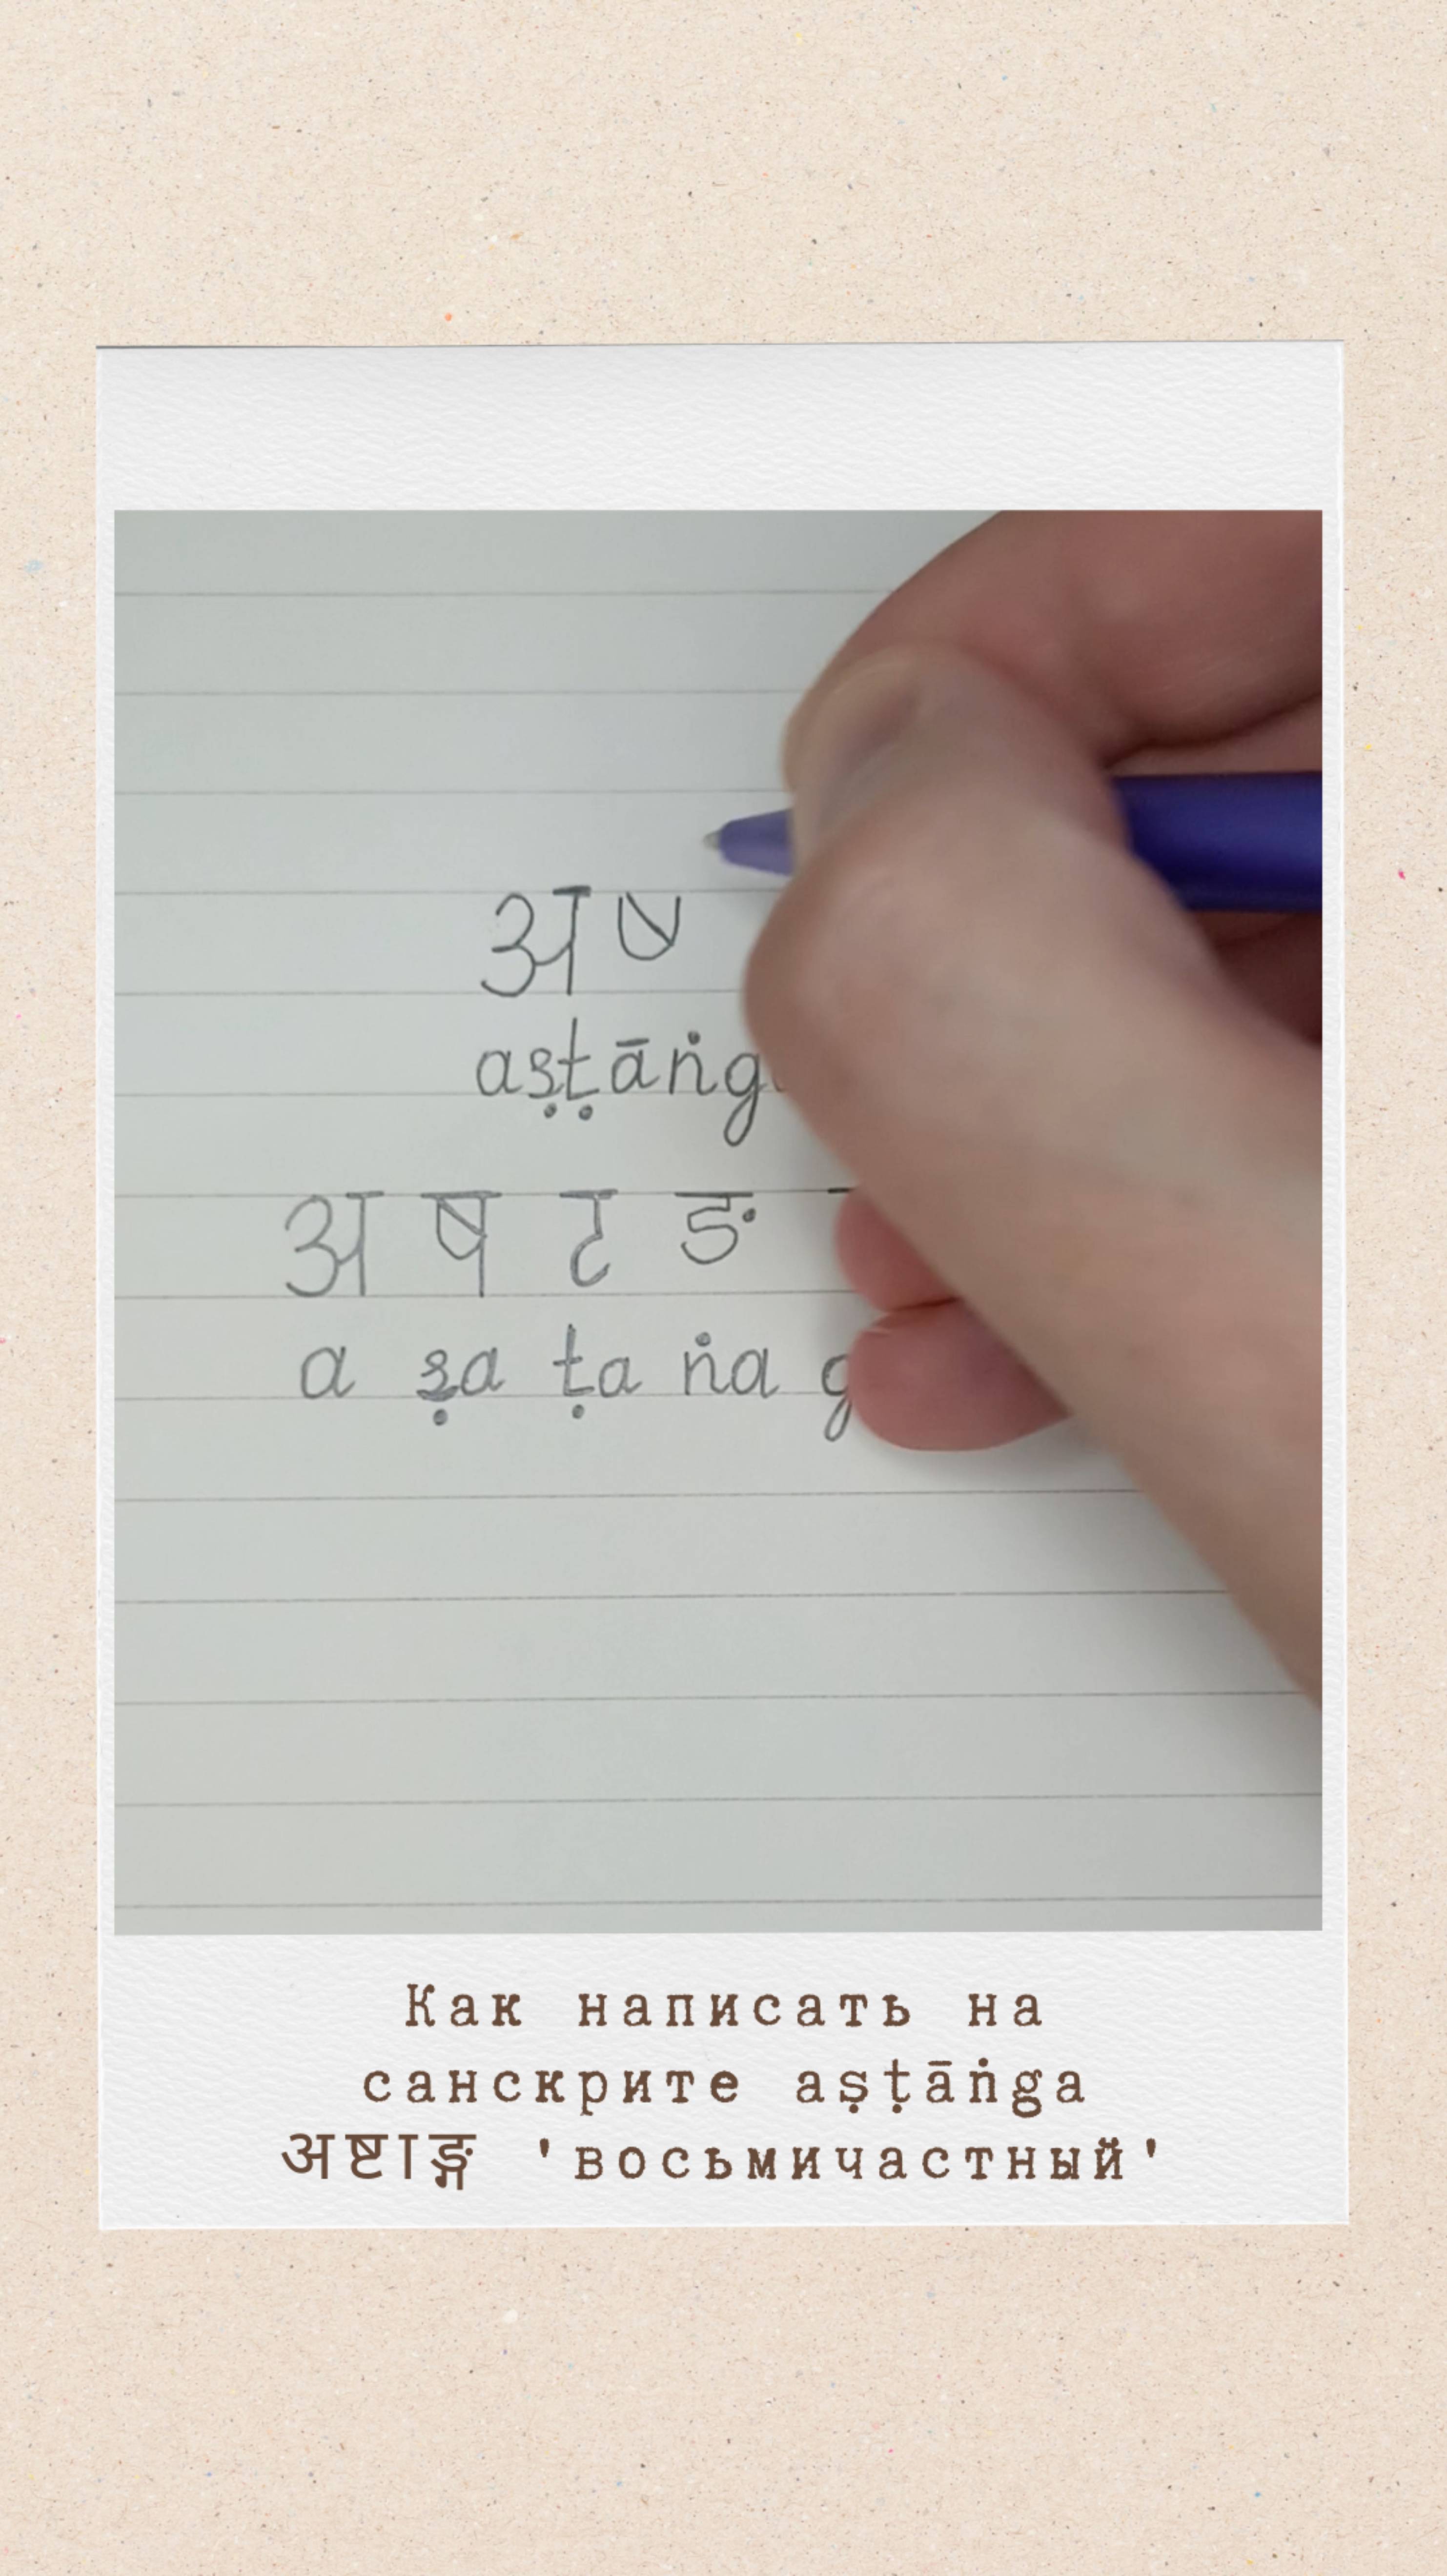 अ ष
aṣṭāṅg
अ ष ट ङ
a ṣa ṭa ṅa g
Как написать на
санскрите aṣṭāṅga
अष्टाङ्ग 'восьмичастный'